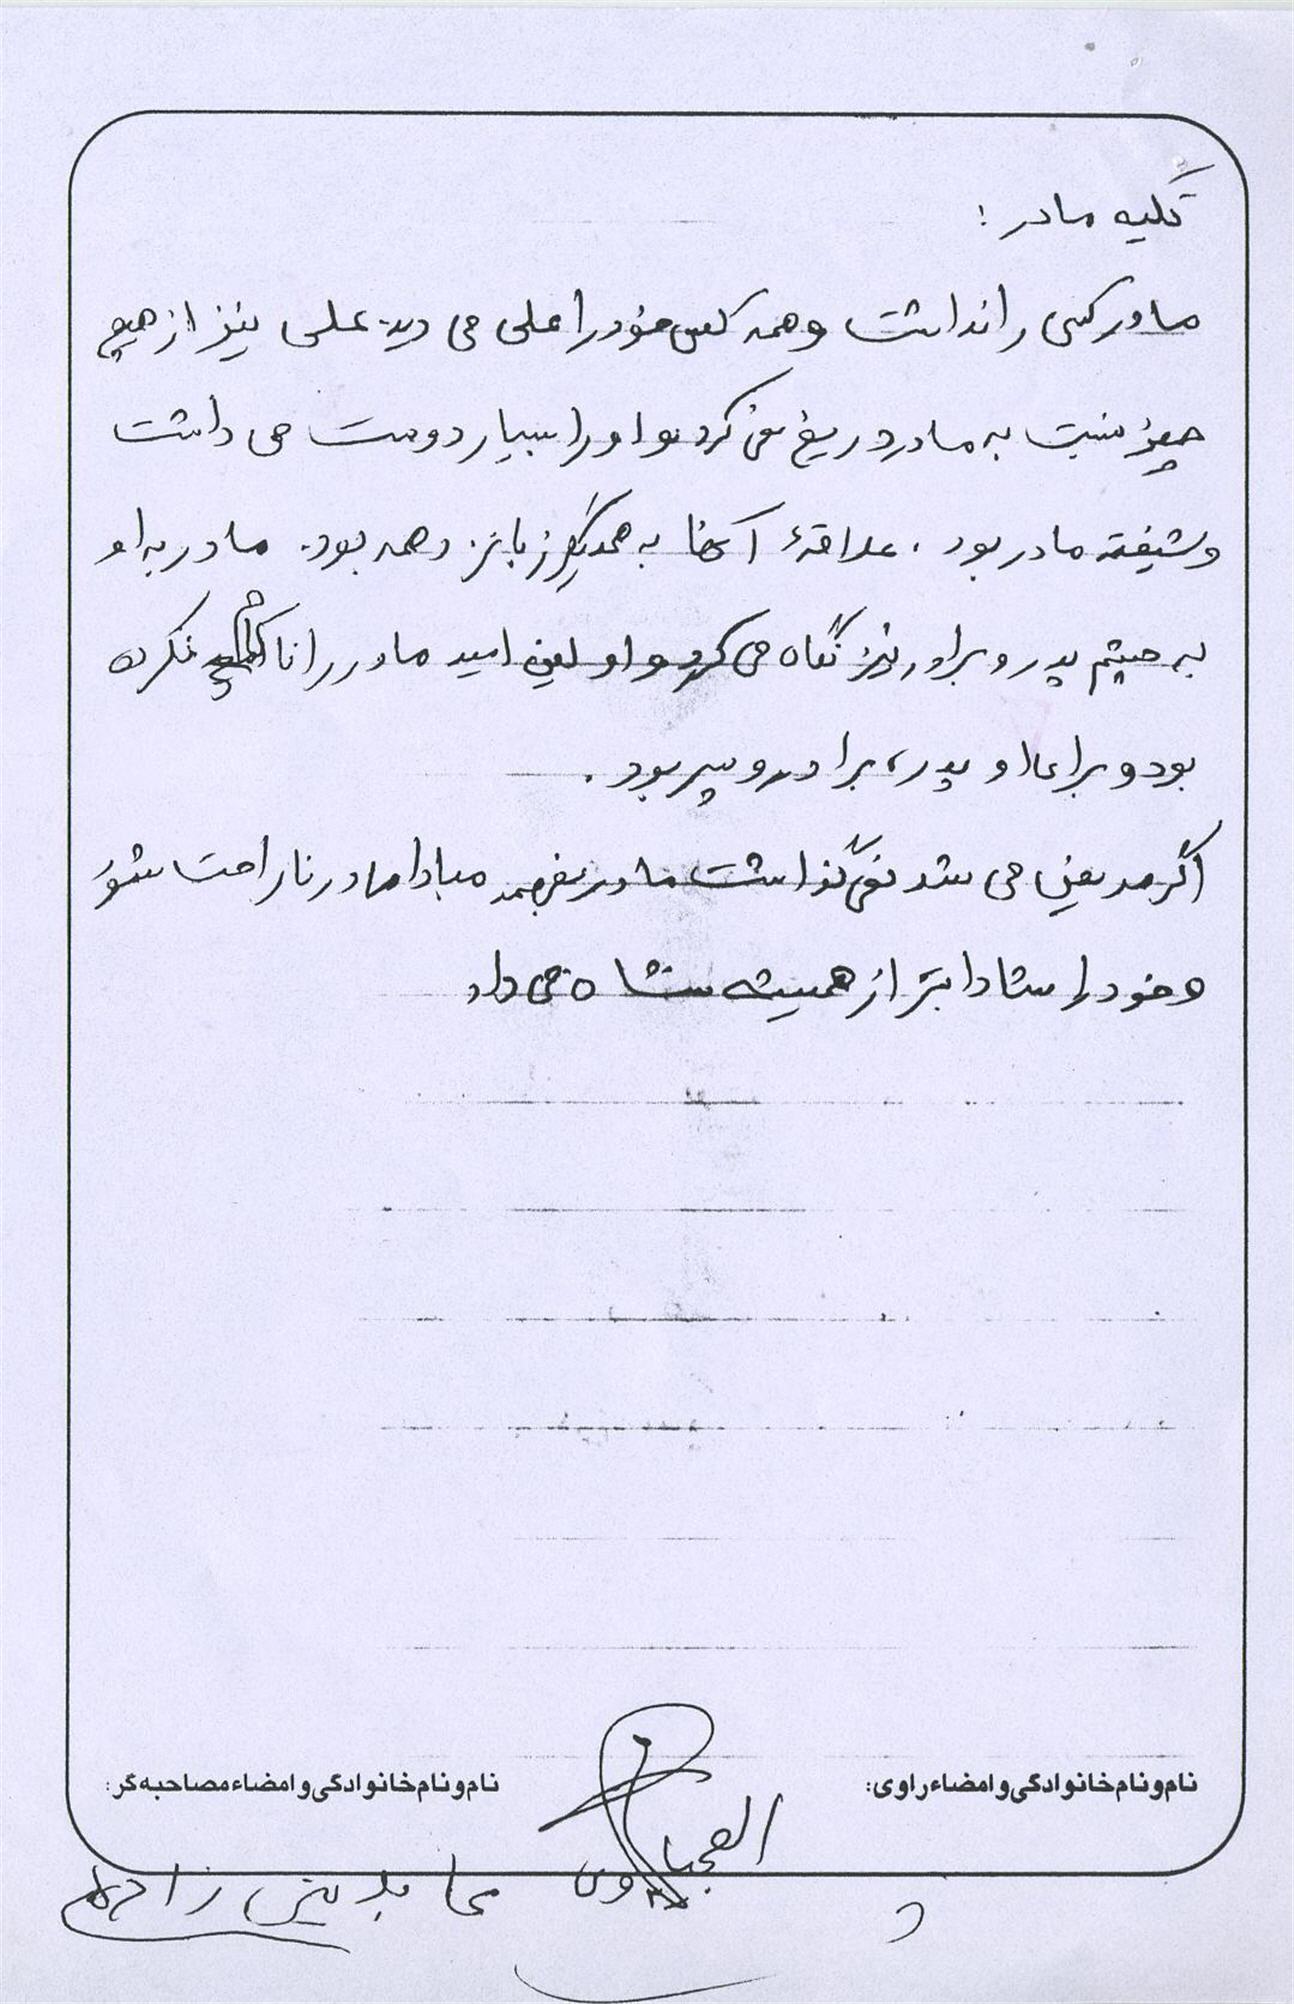 تکیه مادر :
مادر کسی را نداشت و همه کس خود را علی می دید. علی نیز از هیچ
چیز نسبت به مادر دریغ نمی کرد و او را بسیار دوست می داشت
و شیفته مادر بود . علاقهٔ آنها به همدیگر زبانزد همه بود. مادر به او
به چشم پدر و برادر نیز نگاه می کرد و او نیز امید مادر را نا نکرده
بود و برای او پدر، برادر و پسر بود .
اگر مریض می شد نمی گذاشت مادر بفهمد مبادا مادر ناراحت شود
و خود را شادابتر از همیشه نشان می داد
نام و نام خانوادگی و امضاء راوی:
نام و نام خانوادگی و امضاء مصاحبه گر: